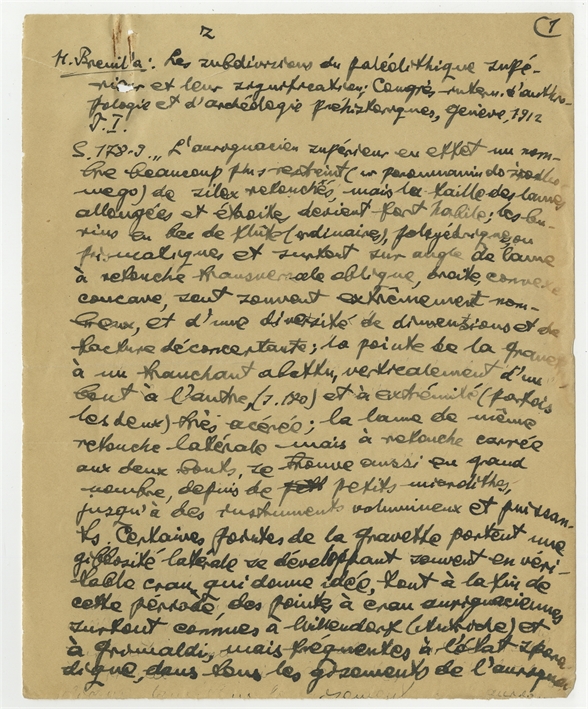 z (1
H. Breuil'a: Les subdivisions du paléolithique supé-
rieur et leur signification: Congrès intern. d'anthro-
pologie et d'archéologie préhistoriques, Genève, 1912
T. I.
S. 178-9. „L'aurignacien supérieur en effet un nom-
bre beaucoup plus restreint (w porównaniu do środko
wego) de silex retouchés, mais la taille des lames
allongées et étroites devient fort habile; les bu-
rins en bec de flute (ordinaires), polyédriques ou
prismatiques et surtout sur angle de lame
à retouche transversale oblique, droite convexe
concave, sont souvent extrêmement nom-
breux, et d'une diversité de dimensions et de
facture déconcertante; la pointe de la Gravet
à un tranchant abattu, verticalement d'un
bout à l'autre, et à extrémité (parfois
les deux) très acérée; la lame de même
retouche latérale mais à retouche carrée
aux deux bouts, se trouve aussi en grand
nombre, depuis de petits microlithes,
jusqu'à des instruments volumineux et puissan-
ts. Certaines pointes de la gravette portent une
gibbosité latérale se développant souvent en véri-
table cran, qui donne idée, tout à la fin de
cette période, des pointes à cran aurignaciennes
surtout connues à Willendorf (Autriche) et
à Grimaldi, mais fréquentes à l'état spora
dique, dans tous les gisements de l'aurignac